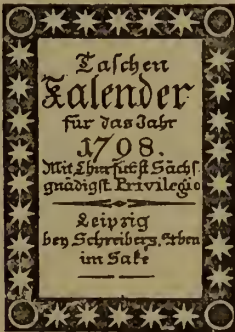 Taschen
Kalender
für das Jahr
1798.
Mit Churfürstl Sächs
gnädigst Privilegio
Leipzig
bey Schreibers Erben
im Sake